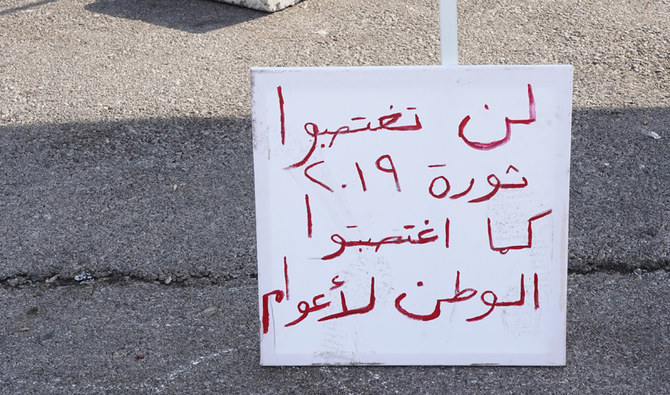 لن تغتصبوا
ثورة ٢٠١٩
كما اغتصبتوا
الوطن لأعوام